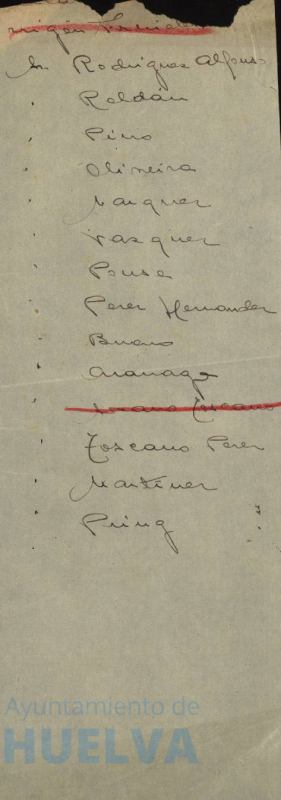 Sr. Rodriguez Alfonso
" Roldán
" Pino
" Olineira
" Marquez
" Vazquez
" Ponse
" Perez Hernandez
" Bueno
" Aranaga
" Toscano
" Toscano Perez
" Martinez
" Pring
Ayuntamiento de
HUELVA